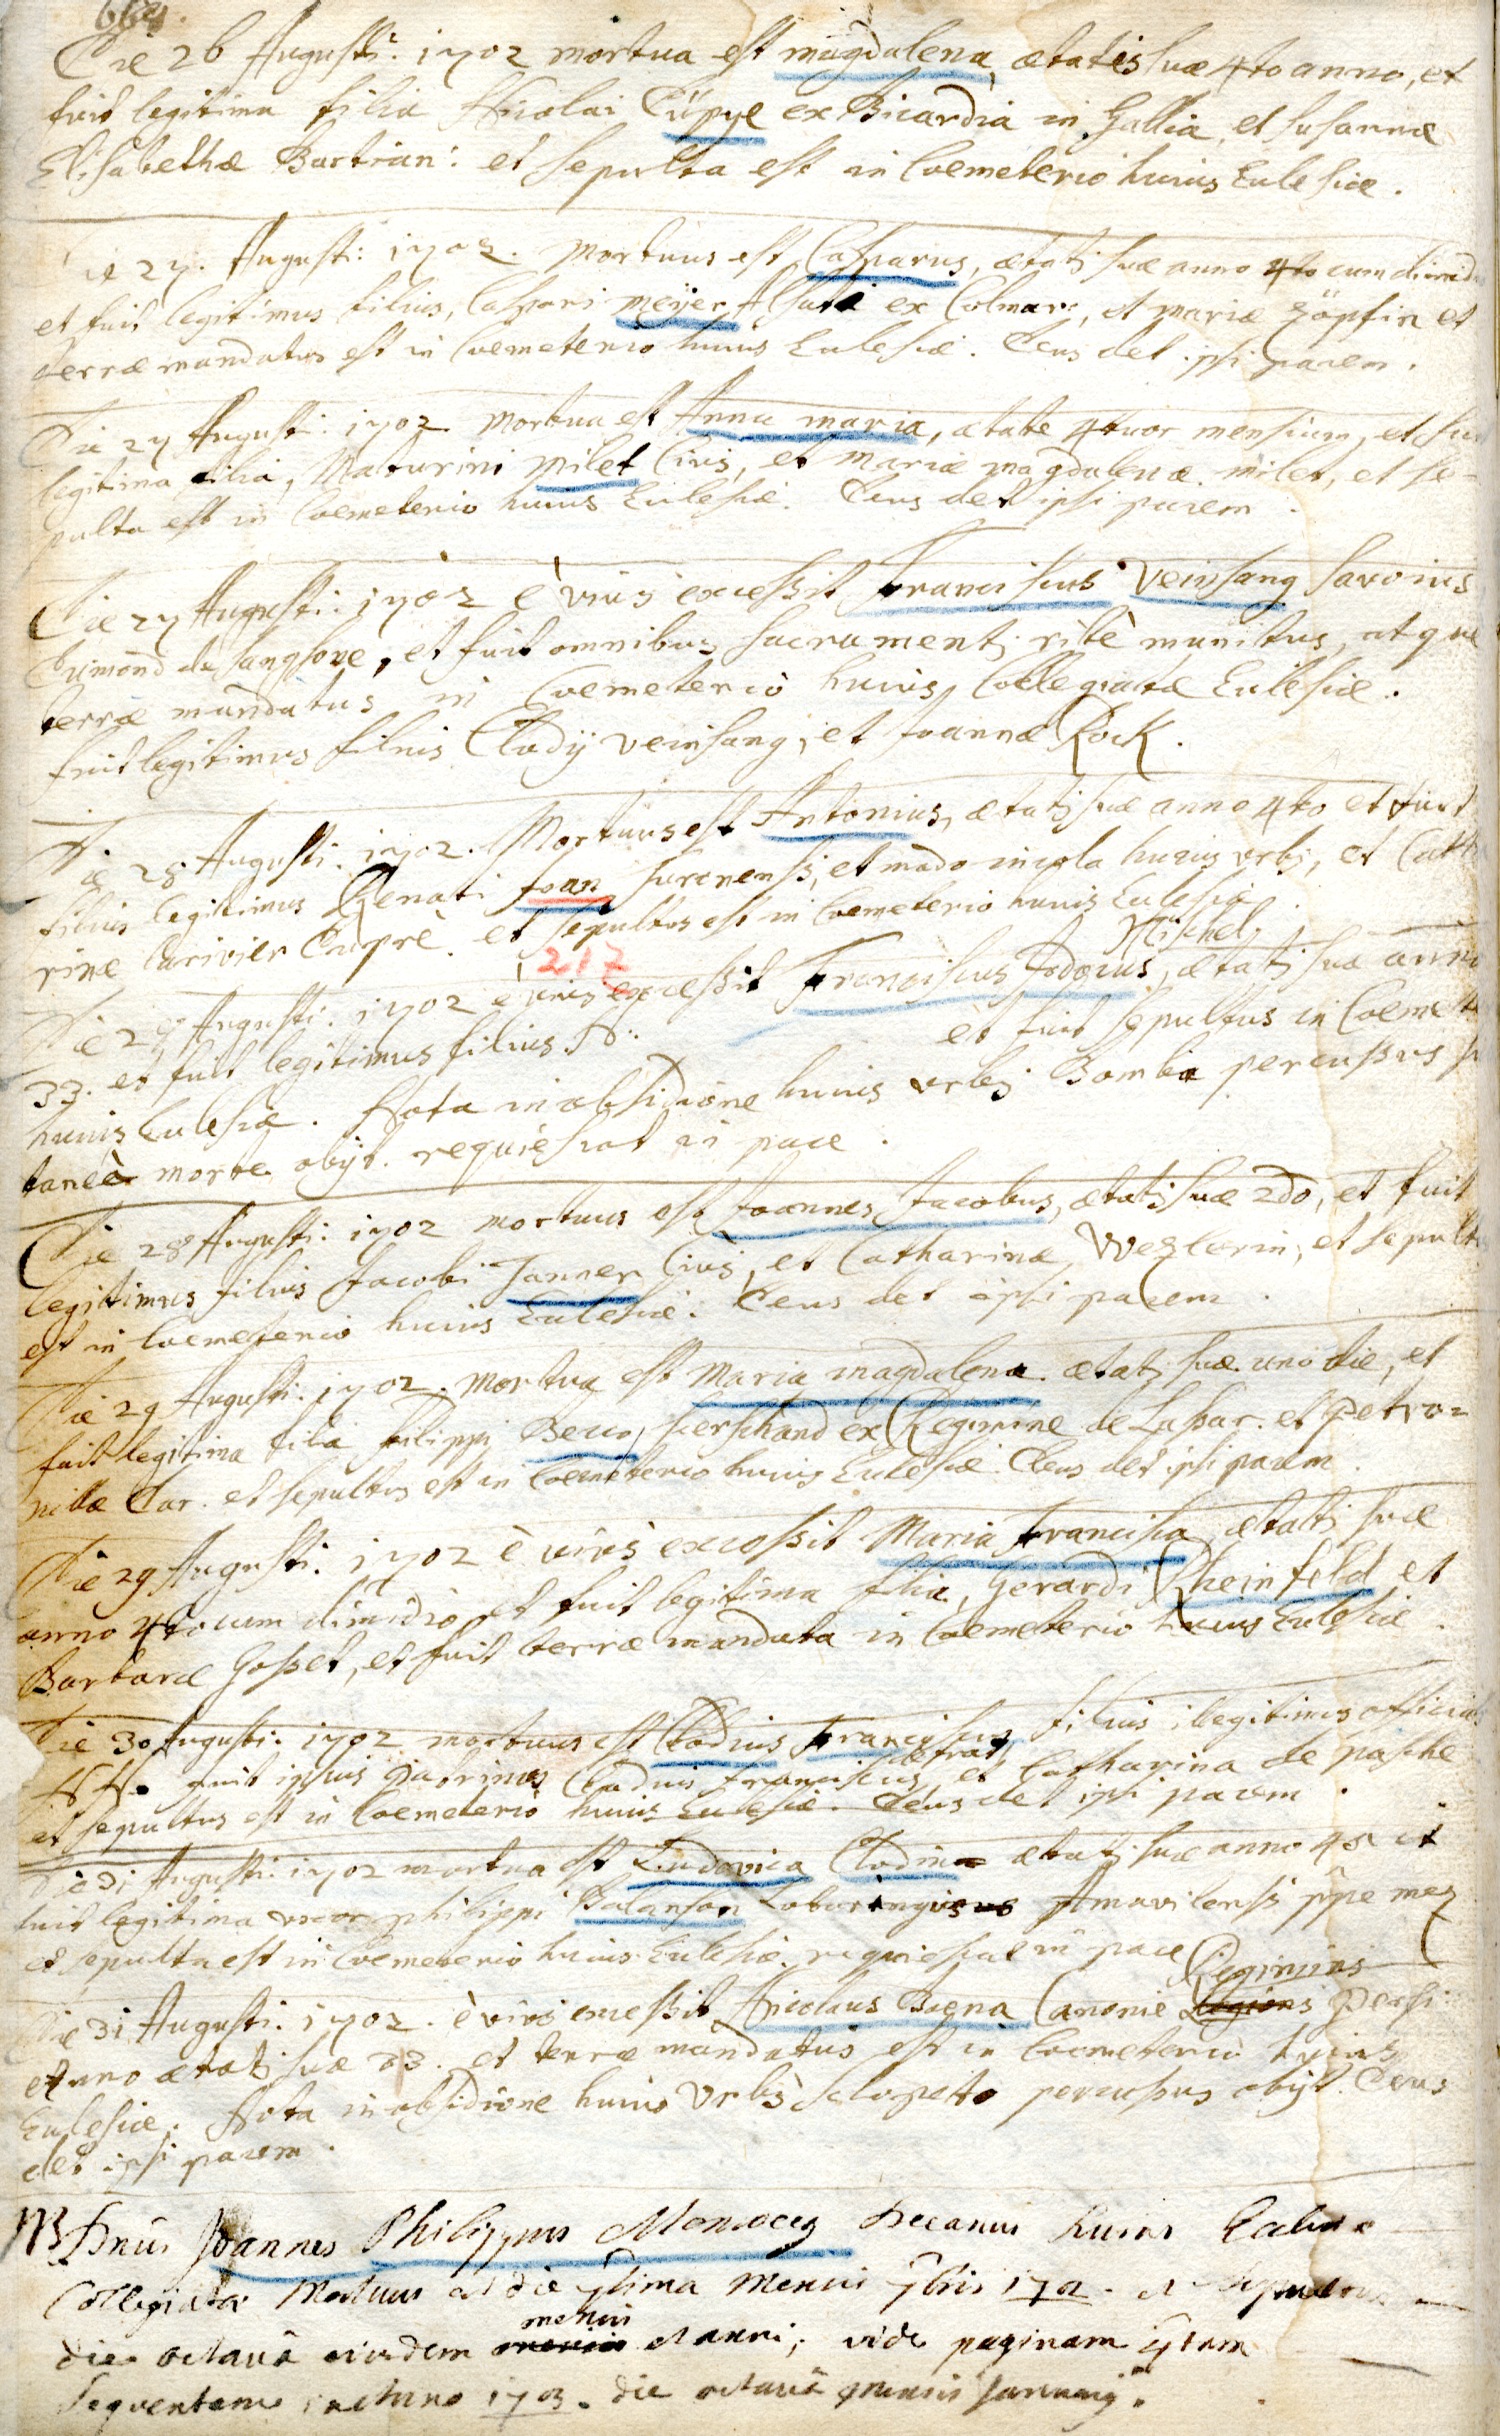 664.
Die 26 Augusti: 1702 mortua est magdalena, ætatis suæ 4to anno, et
fuit legitima filia Nicolai Cüpye ex Bicardia in Gallia, et susannæ
Elisabethæ Bartrian: et sepulta est in Coemeterio huius Eclesiæ.
Die 27. Augusti: 1702. Mortuus est Casparus, ætatis suæ anno 4to cum dimid
et fuit legitimus filius, Caspari Meijer Alsati ex Colmar, et mariæ Zöpfin et
terræ mandatus est in Coemeterio huius Eclesiæ. Deus det ipsi pacem.
Die 27 Augusti: 1702 Mortua est Anna maria, ætate 4tuor mensium, et fui
legitima filia, Maturini Milet Civis, et Mariæ magdalenæ milet, et se-
pulta est in Coemeterio huius Eclesiæ. Deus det ipsi pacem.
Die 27 Augusti: 1702 è vivis excessit Franciscus Veinsang
de Sangsove, et fuit omnibus sacramentis ritè munitus, atque
terræ mandatus in Coemeterio huius Collegiatæ Eclesiæ.
fuit legitimus filius Clodij veinsang, et Joannæ Rock.
Die 28 Augusti. 1702. Mortuus est Antonius, ætatis suæ anno 4to et fuit
filius legitimus Renati Joan et modo incola huius urbis, et Catha
rinæ Carivier Dupré. et sepultus est in Coemeterio huius Eclesiæ.
217
Michel
Die 28 Augusti. 1702 è vivis excessit Franciscus Jodocus, ætatis suæ anno
33. et fuit legitimus filius. N: et fuit sepultus in Coemet
huius Eclesiæ. Nota in obsidione huius urbis Bomba percussus su
taneà morte obijt. requiescat in pace.
Die 28 Augusti: 1702 mortuus est Joannes Jacobus, ætatis suæ 2do, et fuit
legitimus filius Jacobi Janner Civis, et Catharinæ Wezlerin, et sepult
est in Coemeterio huius Eclesiæ. Deus det ipsi pacem.
Die 29 Augusti. 1702. Mortua est Maria magdalena. ætatis suæ uno die, et
fuit legitima filia filippi Becco, serschand ex Regimine de Lassar. et petro=
nillæ Clar. et sepultus est in Coemeterio huius Eclesiæ. Deus det ipsi pacem.
Die 29 Augusti. 1702 è vivis excessit Maria Francisca, ætatis suæ
anno 4to cum dimidio, et fuit legitima filia, Gerardi Rheinfeld et
Barbaræ Gosset, et fuit terræ mandata in Coemeterio huius Eclesiæ.
Die 30 Augusti. 1702 mortuus est Clodius Franciscus filius illegitimus
NN. fuit ipsius Patrinus Clodius franciscus et Catharina de pasche
et sepultus est in Coemeterio huius Eclesiæ. Deus det ipsi pacem.
Die 31 Augusti. 1702 mortua est Ludovica Clodin ætatis suæ anno 45 et
fuit legitima uxor philippi Balanson Lotaringus
et sepulta est in Coemeterio huius Eclesiæ. requiescat in pace
Regiminis
Die 31 Augusti. 1702. è vivis excessit Nicolaus Bogna Canonie Legionis Persi
anno ætatis suæ 33. et terræ mandatus est in Coemeterio huius
Eclesiæ. Nota in obsidione huius Urbis sclopeto percussus obijt. Deus
det ipsi pacem.
NB Dnus Joannes Philippus Decanus huius Ecclesiæ
Collegiatæ Mortuus est die 7tima Mensis 7bris 1702. et sepultus
mensis
die octavâ eiusdem et anni, vide paginam 4tam
sequentem in anno 1703. die octavâ mensis Januarij.